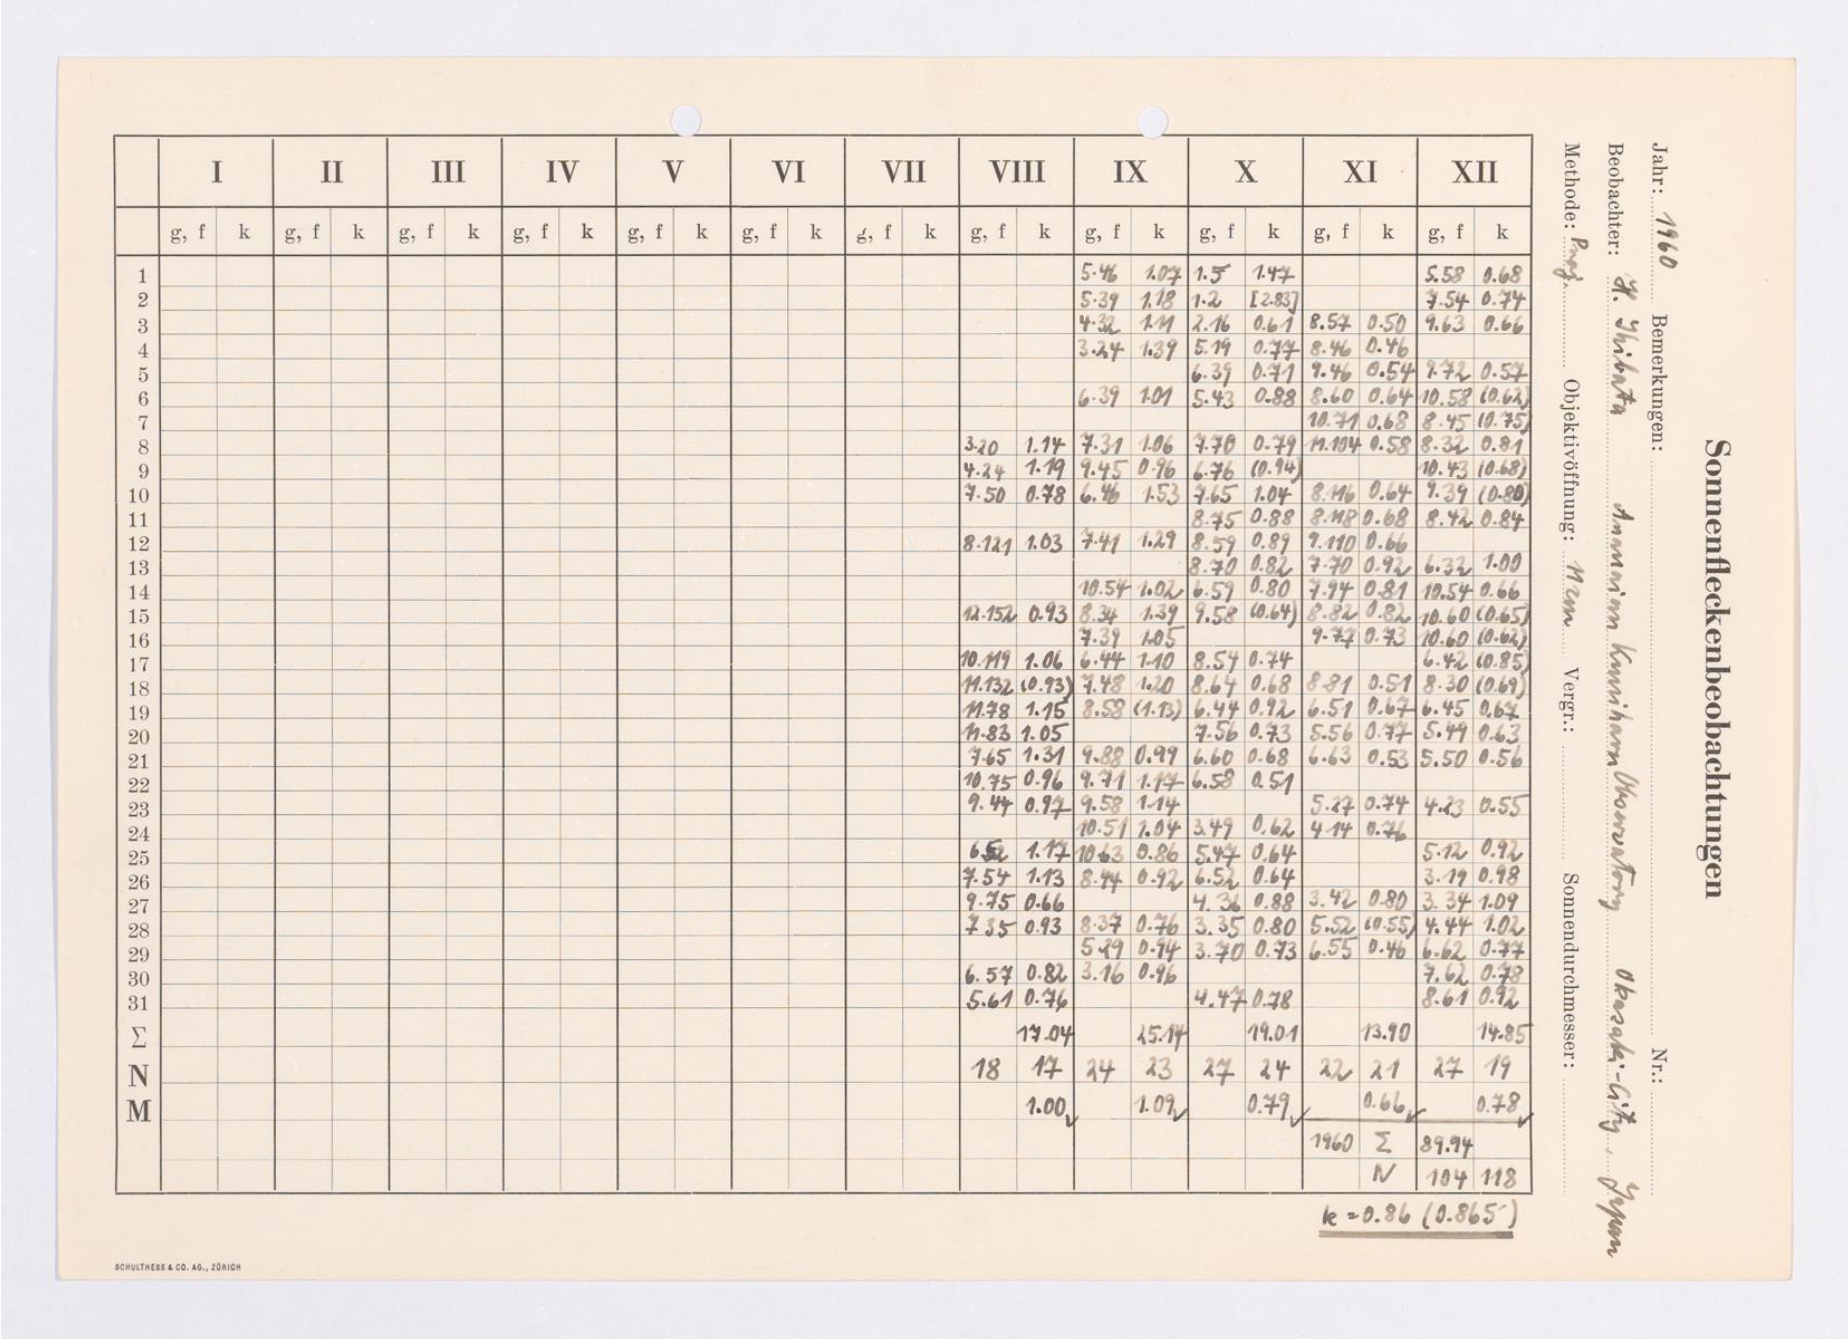 Sonnenfleckenbeobachtungen
Jahr: 1960 Bemerkungen: Nr.:
Beobachter: H. Shibata Observatory Okasaki-City, Japan
Methode: Proj. Objektivöffnung: 11 cm Vergr.: Sonnendurchmesser:
I II III IV V VI VII VIII IX X XI XII
g, f k g, f k g, f k g, f k g, f k g, f k g, f k g, f k g, f k g, f k g, f k g, f k
1 5.46 1.07 1.5 1.47 5.58 0.68
2 5.39 1.18 1.2 [2.83] 7.54 0.74
3 4.32 1.11 2.16 0.61 8.57 0.50 9.63 0.66
4 3.24 1.39 5.19 0.77 8.46 0.46
5 6.39 0.71 9.46 0.54 9.72 0.57
6 6.39 1.01 5.43 0.88 8.60 0.64 10.58 (0.62)
7 10.71 0.68 8.45 (0.75)
8 3.20 1.14 7.31 1.06 7.70 0.79 11.104 0.58 8.32 0.81
9 4.24 1.19 9.45 0.96 6.76 (0.94) 10.43 (0.68)
10 7.50 0.78 6.46 1.53 7.65 1.04 8.116 0.64 9.39 (0.80)
11 8.75 0.88 8.118 0.68 8.42 0.84
12 8.121 1.03 7.41 1.29 8.59 0.89 9.110 0.66
13 8.70 0.82 7.70 0.92 6.32 1.00
14 10.54 1.02 6.59 0.80 7.94 0.81 10.54 0.66
15 12.152 0.93 8.34 1.39 9.58 (0.64) 8.82 0.82 10.60 (0.65)
16 7.39 1.05 9.77 0.73 10.60 (0.62)
17 10.119 1.06 6.44 1.10 8.54 0.74 6.42 (0.85)
18 11.132 (0.93) 7.48 1.20 8.64 0.68 8.81 0.51 8.30 (0.69)
19 11.78 1.15 8.58 (1.13) 6.44 0.92 6.51 0.67 6.45 0.67
20 11.83 1.05 7.56 0.73 5.56 0.77 5.49 0.63
21 7.65 1.31 9.88 0.99 6.60 0.68 6.63 0.53 5.50 0.56
22 10.75 0.96 9.71 1.17 6.58 0.51
23 9.44 0.97 9.58 1.14 5.27 0.74 4.23 0.55
24 10.51 1.04 3.49 0.62 4.14 0.76
25 6.52 1.17 10.63 0.86 5.47 0.64 5.12 0.92
26 7.54 1.13 8.44 0.92 6.52 0.64 3.19 0.98
27 9.75 0.66 4.36 0.88 3.42 0.80 3.34 1.09
28 7.35 0.93 8.37 0.76 3.35 0.80 5.52 (0.55) 4.44 1.02
29 5.29 0.94 3.70 0.73 6.55 0.46 6.62 0.77
30 6.57 0.82 3.16 0.96 7.62 0.78
31 5.61 0.76 4.47 0.78 8.61 0.92
Σ 17.04 25.14 19.01 13.90 14.85
N 18 17 24 23 27 24 22 21 27 19
M 1.00 1.09 0.79 0.66 0.78
1960 Σ 89.94
N 104 118
k = 0.86 (0.865)
SCHULTHESS & CO. AG., ZÜRICH